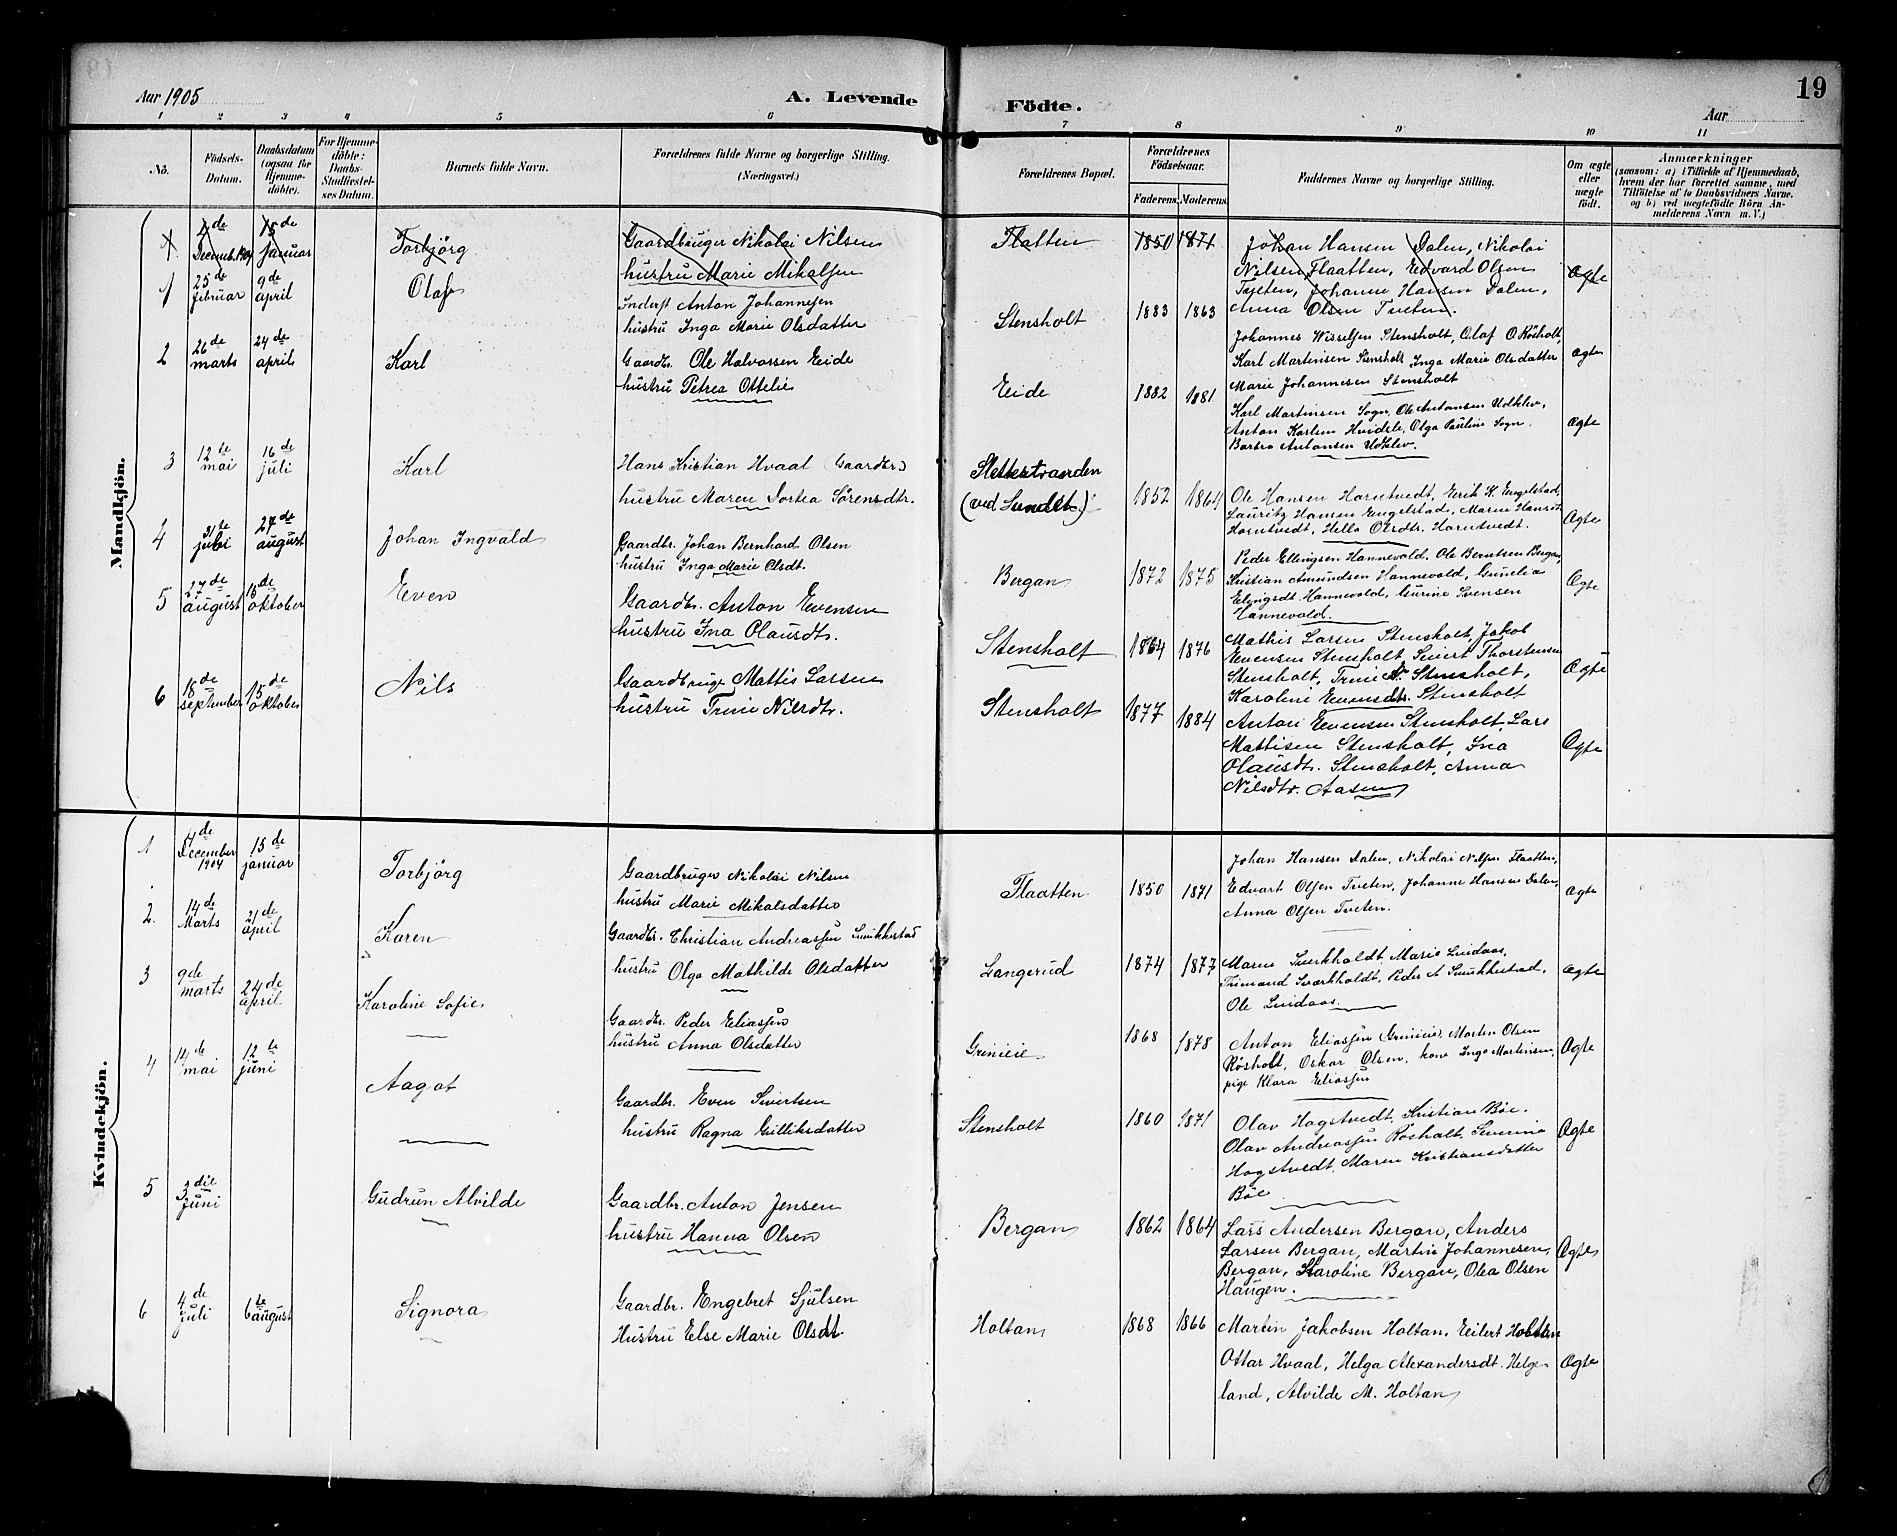 Aar 1905 A. Levende Födte. Aar 19
1 2 3 4 5 6 7 8 9 10 11
No. Födsels-Datum. Daabsdatum (ogsaa for Hjemme-döbte). For Hjemme-döbte: Daabs-Stadfæstel-ses Datum. Barnets fulde Navn. Forældrenes fulde Navne og borgerlige Stilling. (Næringsvei.) Forældrenes Bopæl. Forældrenes Födselsaar. Faderens. Moderens. Faddernes Navne og borgerlige Stilling. Om ægte eller uægte födt. Anmærkninger (saasom: a) i Tilfælde af Hjemmedaab, hvem der har forrettet samme, med Tilföielse af to Daabsvidners Navne. og b) ved uægtefödte Börn An-melderens Navn m. V.)
Mandkjön.
1. 4de Decemb. 1904 15de januar Torbjörg Gaardbruger Nikolai Nilsen Flatten 1850 1871 Johan Hansen Dalen, Nikolai
hustru Marie Mikalsen Nilsen Flaatten, Edvard Olsen Ægte
Tveten, Johanne Hansen Dalen,
Anna Olsen Tveten.
1 25de februar 9de april Olaf Inderst Anton Johannesen Stensholt 1883 1863 Johannes Wisselsen Stensholt, Olaf O. Röshólt,
hustru Inga Marie Olsdatter Karl Martensen Stensholt Inga Marie Olsdatter Ægte
Marie Johannesen Stensholt
2 26de marts 24de april Karl Gaardbr. Ole Halvorsen Eide Eide 1882 1881 Karl Martinsen Sogn, Ole Antonsen Udklev,
hustru Petrea Ottelie Anton Karlsen Hvidsle, Olga Pauline Sogn, Ægte
Barbro Antonsen Udklev.
3 12te mai 16de juli Karl Hans Kristian Hvaal (Gaardbr.) Slettestranden 1852 1864 Ole Hansen Harntvedt, Erik K. Engelstad,
hustru Maren Dortea Sörensdtr. (ved Sundet) Lauritz Hansen Engelstad, Maren Hansdt
Horntvedt, Hella Olsdtr. Horntvedt. Ægte
4 31te juli 27de august Johan Ingvald Gaardbr. Johan Bernhard Olsen Bergan 1872 1875 Peder Ellingsen Hannevold, Ole Berntsen Bergan,
hustru Inga Marie Olsdt. Kristian Amundsen Hannevold, Gunelia Ægte
Elingsdt. Hannevold, Gurine Svensen
Hannevold.
5 27de august 15de oktober Even Gaardbr. Anton Evensen Stensholt 1864 1876 Mathis Larsen Stensholt, Jakob
hustru Ina Olausdtr. Evensen Stensholt Sivert Thorstensen
Stensholt, Trine N. Stensholt, Ægte
Karoline Evensdtr. Stensholt
6 18de september 15de oktober Nils Gaardbruge Mattis Larsen Stensholt 1877 1884 Anton Evensen Stensholt, Lars
hustru Trine Nilsdtr. Mattisen Stensholt, Ina Ægte
Olausdtr. Stensholt, Anna
Nilsdtr. Aasen
Kvindekjön.
1 4de December 1904 15de januar Torbjörg Gaardbruger Nikolai Nilsen Flaatten 1850 1871 Johan Hansen Dalen, Nikolai Nilsen Flaatten,
hustru Marie Mikalsdatter Edvart Olsen Tveten, Johanne Hansen Dalen, Ægte
Anna Olsen Tveten.
2. 14de Marts 21de april Karen Gaardbr. Christian Andreassen Smukkestad Langerud 1874 1877 Maren Sverkholdt, Marie Lindaas,
hustru Olga Mathilde Olsdatter Trimand Sværkholdt, Peder A Smukkestad, Ægte
Ole Lindaas.
3 9de marts 24de april Karoline Sofie Gaardbr. Peder Eliassen Grinieie 1868 1878 Anton Eliassen Grinieie, Morten Olsen
hustru Anna Olsdatter Röshólt, Oskar Olsen, kone Inga Martinsen, Ægte
pige Klara Eliassen
4 14de mai 12te juni Aagot Gaardbr. Even Sivertsen Stensholt 1860 1871 Olav Hogstvedt, Kristian Böe.
hustru Ragna Gulliksdatter Olav Andreassen Röshólt, Severine Ægte
Hogstvedt, Maren Kristiansdatter
Böe
5 3die Juni Gudrun Alvilde Gaardbr. Anton Jensen Bergan 1862 1864 Lars Andersen Bergan, Anders
hustru Hanna Olsen Larsen Bergan, Martin Johannesen, Ægte
Bergan, Karoline Bergan, Olea Olsen
Haugen.
6 4de juli 6te august Signora Gaardbr. Engebret Sjulsen Holtan 1868 1866 Martin Jakobsen Holtan, Eilert Holtan
Hustru Else Marie Olsdt Ottar Hvaal, Helga Alexandersdt. Helge- Ægte
land, Alvilde M. Holtan